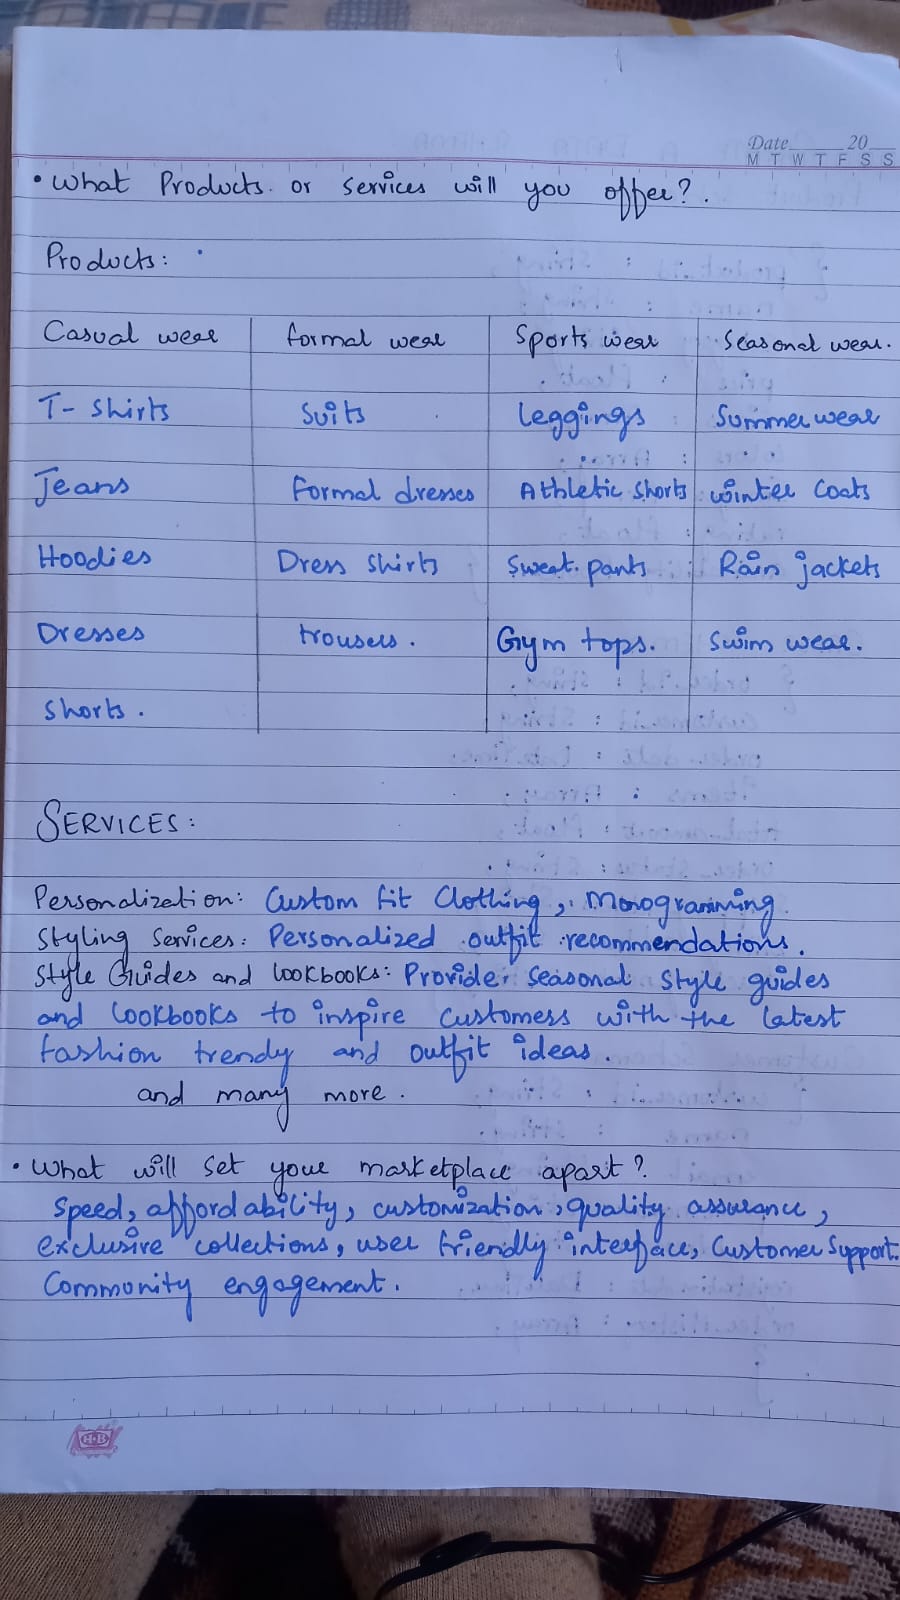 Date 20
M T W T F S S
• What Products or Services will you offer?.
Products:
Casual wear formal wear Sports wear Seasonal wear.
T- Shirts Suits Leggings Summer wear
Jeans Formal dresses Athletic Shorts winter Coats
Hoodies Dress Shirts Sweat pants Rain jackets
Dresses trousers. Gym tops. Swim wear.
Shorts.
SERVICES:
Personalization: Custom fit Clothing, Monogramming.
Styling Services: Personalized outfit recommendations.
Style Guides and Lookbooks: Provide seasonal style guides
and lookbooks to inspire customers with the latest
fashion trendy and outfit ideas.
and many more.
• What will set your marketplace apart?
Speed, affordability, customization, quality assurance,
exclusive collections, user friendly interface, Customer Support.
Community engagement.